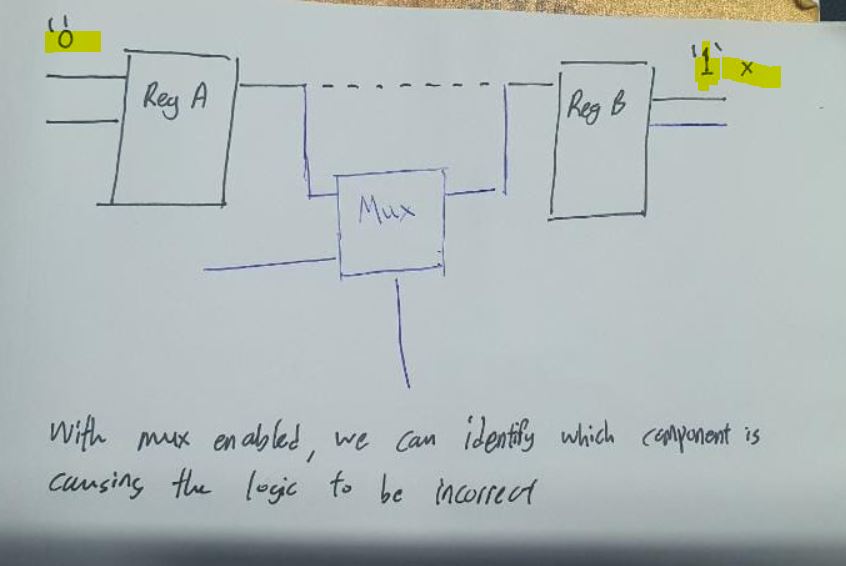 '0'
'1' x
Reg A
Reg B
Mux
With mux enabled, we can identify which component is
causing the logic to be incorrect